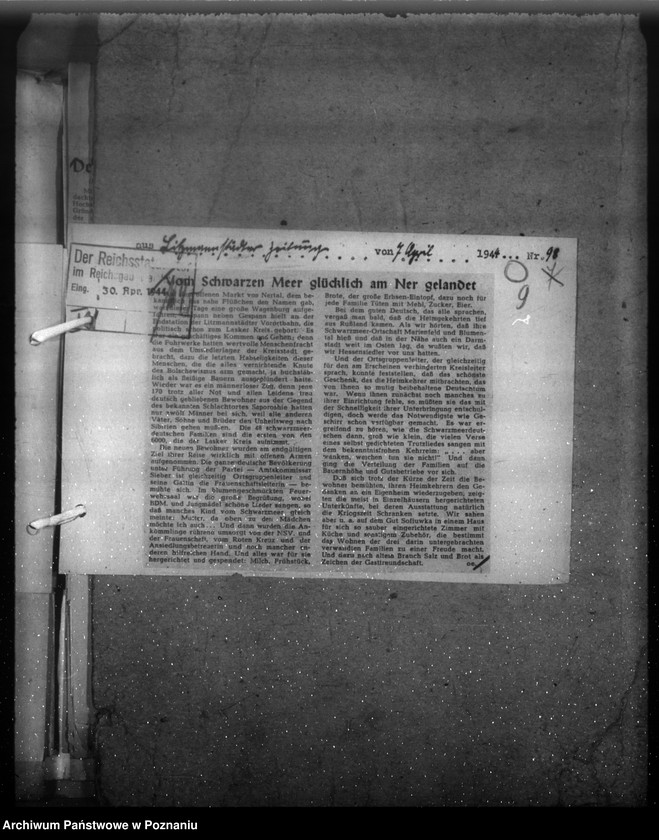 aus Litzmannstädter Zeitung von 7 April 1944 Nr. 98
Der Reichsstat
im Reichsgau
Eing. 30. Apr. 1944
9
Vom Schwarzen Meer glücklich am Ner gelandet
offenen Markt von Nertal, dem be-
das nahe Flüßchen den Namen gab,
Tage eine große Wagenburg aufge-
Denn neben Gespann hielt an der
Endstation der Litzmannstädter Vorortbahn, die
politisch schon zum Lasker Kreis gehört. Es
war ein geschäftiges Kommen und Gehen; denn
die Fuhrwerke hatten wertvolle Menschenfracht
aus dem Umsiedlerlager der Kreisstadt ge-
bracht, dazu die letzten Habseligkeiten dieser
Menschen, die die alles vernichtende Knute
des Bolschewismus arm gemacht, ja buchstäb-
lich als fleißige Bauern ausgeplündert hatte.
Wieder war es ein männerloser Zug, denn jene
170 trotz aller Not und allen Leidens treu
deutsch gebliebenen Bewohner aus der Gegend
des bekannten Schlachtortes Saporoshje hatten
nur zwölf Männer bei sich, weil alle anderen
Väter, Söhne und Brüder den Unheilsweg nach
Sibirien gehen mußten. Die 45 schwarzmeer-
deutschen Familien sind die ersten von den
6000, die der Lasker Kreis aufnimmt.
Die neuen Bewohner wurden am endgültigen
Ziel ihrer Reise wirklich mit offenen Armen
aufgenommen. Die ganze deutsche Bevölkerung
unter Führung der Partei — Amtskommissar
Sieber ist gleichzeitig Ortsgruppenleiter und
seine Gattin die Frauenschaftsleiterin — be-
mühte sich. Im blumengeschmückten Feuer-
wehrsaal war die große Begrüßung, wobei
BDM. und Jungmädel schöne Lieder sangen, so
daß manches Kind vom Schwarzmeer gleich
meinte: Mutter, da oben zu den Mädchen
möchte ich auch... Und dann wurden die An-
kömmlinge rührend umsorgt von der NSV. und
der Frauenschaft, vom Roten Kreuz und der
Ansiedlungsbetreuerin und noch mancher an-
deren hilfreichen Hand. Und alles war für sie
hergerichtet und gespendet: Milch, Frühstück,
Brote, der große Erbsen-Eintopf, dazu noch für
jede Familie Tüten mit Mehl, Zucker, Eier.
Bei dem guten Deutsch, das alle sprachen,
vergaß man bald, daß die Heimgekehrten tief
aus Rußland kamen. Als wir hörten, daß ihre
Schwarzmeer-Ortschaft Marienfeld und Blumen-
tal hieß und daß in der Nähe auch ein Darm-
stadt weit im Osten lag, da wußten wir, daß
wir Hessensiedler vor uns hatten.
Und der Ortsgruppenleiter, der gleichzeitig
für den am Erscheinen verhinderten Kreisleiter
sprach, konnte feststellen, daß das schönste
Geschenk, das die Heimkehrer mitbrachten, das
von ihnen so mutig beibehaltene Deutschtum
war. Wenn ihnen zunächst noch manches zu
ihrer Einrichtung fehle, so müßten sie das mit
der Schnelligkeit ihrer Unterbringung entschul-
digen, doch werde das Notwendigste wie Ge-
schirr schon verfügbar gemacht. Es war er-
greifend zu hören, wie die Schwarzmeerdeut-
schen dann, groß wie klein, die vielen Verse
eines selbst gedichteten Trutzliedes sangen mit
dem bekenntnisfrohen Kehrreim: „... aber
wanken, weichen tun sie nicht!" Und dann
ging die Verteilung der Familien auf die
Bauernhöfe und Gutsbetriebe vor sich.
Daß sich trotz der Kürze der Zeit die Be-
wohner bemühten, ihren Heimkehrern den Ge-
danken an ein Eigenheim wiederzugeben, zeig-
ten die meist in Einzelhäusern hergerichteten
Unterkünfte, bei deren Ausstattung natürlich
die Kriegszeit Schranken setzte. Wir sahen
aber u. a. auf dem Gut Sofiuwka in einem Haus
für sich so sauber eingerichtete Zimmer mit
Küche und sonstigem Zubehör, die bestimmt
das Wohnen der drei darin untergebrachten
verwandten Familien zu einer Freude macht.
Und dazu nach altem Brauch Salz und Brot als
Zeichen der Gastfreundschaft.
Archiwum Państwowe w Poznaniu